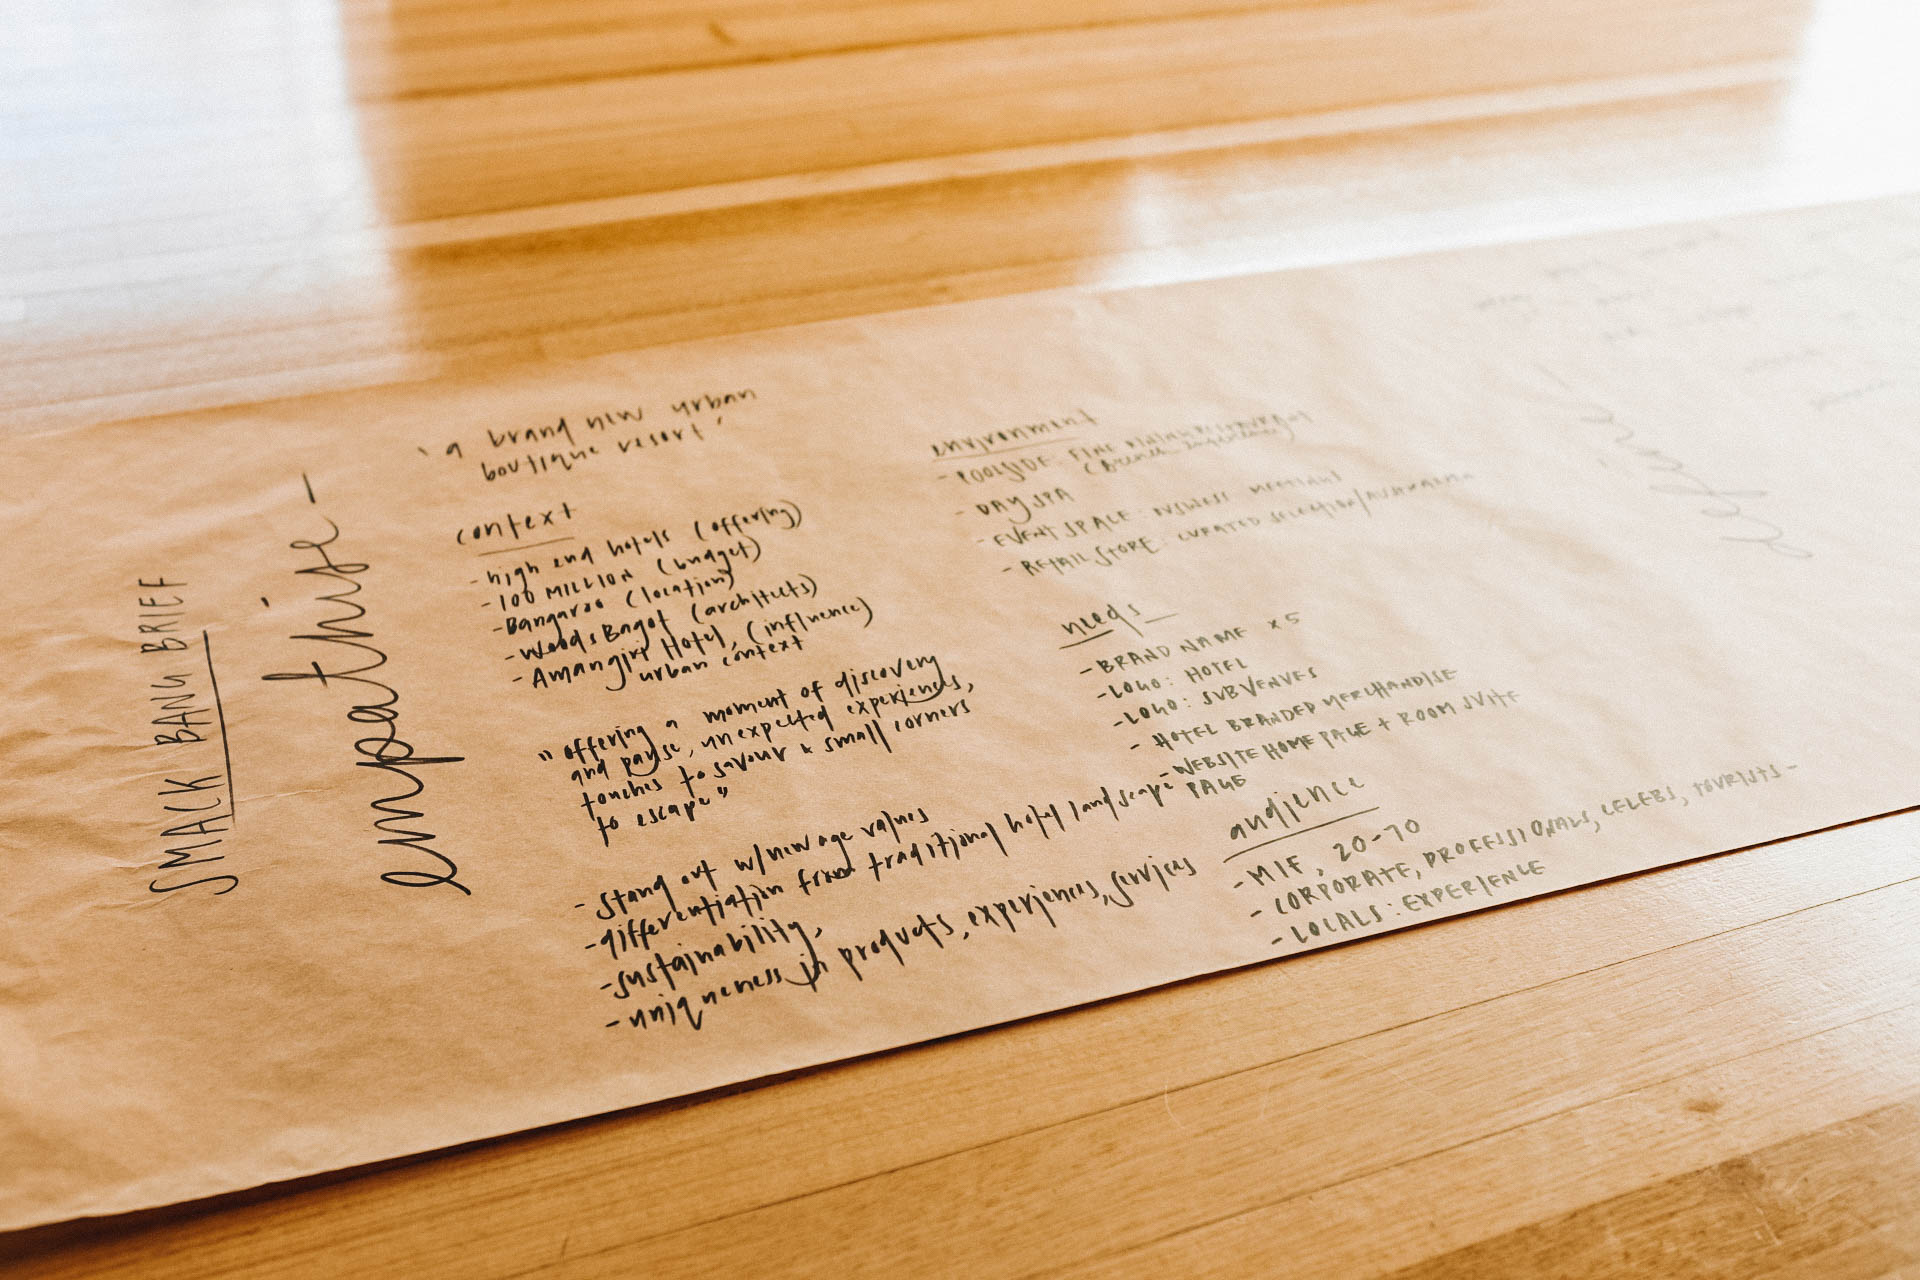 SMACK BANG BRIEF
empathise -
'a brand new urban
boutique resort'
context
- high end hotels (offering)
- 100 MILLION (budget)
- Bangaroo (location)
- Woods Bagot (architects)
- Amangiri Hotel, (influence)
urban context
"offering a moment of discovery
and pause, unexpected experiences,
touches to savour & small corners
to escape"
- stand out w/ new age values
- differentiation from traditional hotel landscape
- sustainability,
- uniqueness in products, experiences, services
environment
- POOLSIDE: FINE DINING RESTAURANT
- DAY SPA
- EVENT SPACE: BUSINESS MEETINGS
- RETAIL STORE: CURATED SELECTION/
needs
- BRAND NAME x 5
- LOGO: HOTEL
- LOGO: SUBVENUES
- HOTEL BRANDED MERCHANDISE
- WEBSITE HOME PAGE + ROOM SUITE
PAGE
audience
- M/F, 20-70
- CORPORATE, PROFESSIONALS, CELEBS, TOURISTS -
- LOCALS: EXPERIENCE